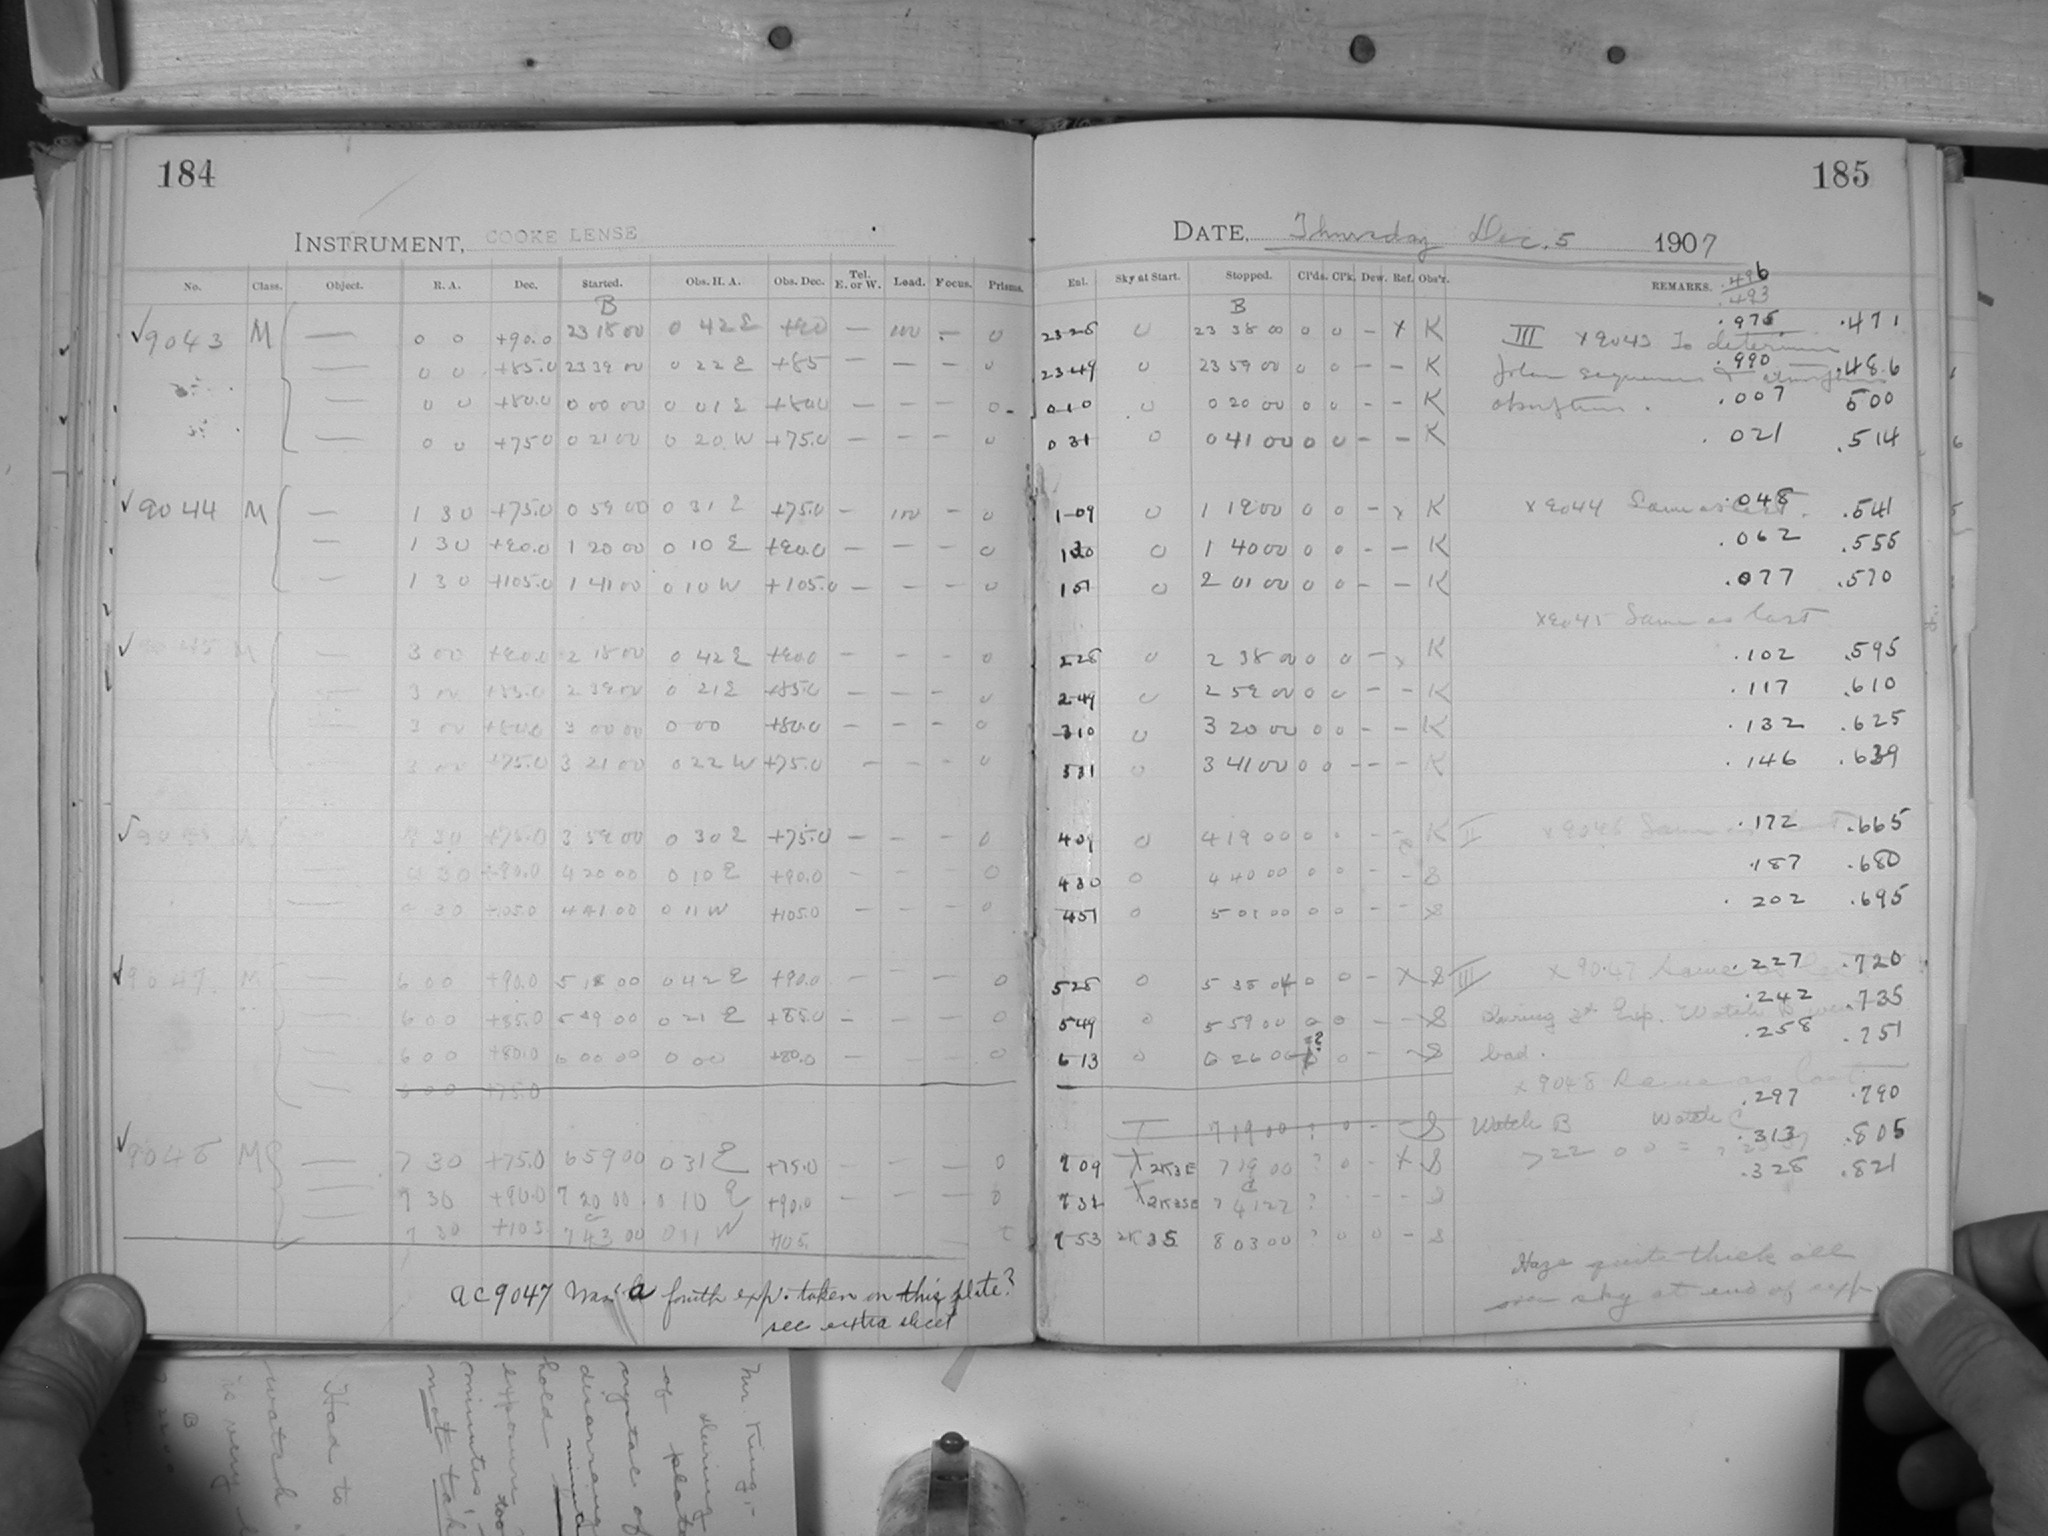 184
INSTRUMENT, COOKE LENSE
No. Class. Object. R. A. Dec. Started. Obs. H. A. Obs. Dec. Tel. E. or W. Lead. Focus. Prisms.
B
✓9043 M — 0 0 +90.0 23 18 00 0 42 E +90 — 100 — 0
— 0 0 +85.0 23 39 00 0 22 E +85 — — — 0
— 0 0 +80.0 0 00 00 0 01 E +80.0 — — — 0
— 0 0 +75.0 0 21 00 0 20 W +75.0 — — — 0
✓9044 M — 1 30 +75.0 0 59 00 0 31 E +75.0 — 100 — 0
— 1 30 +90.0 1 20 00 0 10 E +90.0 — — — 0
— 1 30 +105.0 1 41 00 0 10 W +105.0 — — — 0
✓9045 M — 3 00 +90.0 2 18 00 0 42 E +90.0 — — — 0
— 3 00 +85.0 2 39 00 0 21 E +85.0 — — — 0
— 3 00 +80.0 3 00 00 0 00 +80.0 — — — 0
— 3 00 +75.0 3 21 00 0 22 W +75.0 — — — 0
✓ 4 30 +75.0 3 59 00 0 30 E +75.0 — — — 0
4 30 +90.0 4 20 00 0 10 E +90.0 — — — 0
— 4 30 +105.0 4 41 00 0 11 W +105.0 — — — 0
✓9047 M — 6 00 +90.0 5 18 00 0 42 E +90.0 — — — 0
— 6 00 +85.0 5 49 00 0 21 E +85.0 — — — 0
— 6 00 +80.0 6 00 00 0 00 +80.0 — — — 0
— 6 00 +75.0
✓9048 M — 7 30 +75.0 6 59 00 0 31 E +75.0 — — — 0
— 7 30 +90.0 7 20 00 0 10 E +90.0 — — — 0
c
— 7 30 +105 7 43 00 0 11 W +105.
ac9047 Was a fourth exp. taken on this plate?
see extra sheet
185
DATE, Thursday Dec. 5 1907
Enl. Sky at Start. Stopped. Cl'ds. Cl'k. Dew. Ref. Obs'r. REMARKS.
.496
.493
B
23 28 0 23 38 00 0 0 – x K III x9043 To determine .975 .471
23 49 0 23 59 00 0 0 – – K Polar sequences & .990 .486
0 10 0 0 20 00 0 0 – – K absorption. .007 500
0 31 0 0 41 00 0 0 – – K .021 .514
1 09 0 1 19 00 0 0 – x K x9044 Same as last. .048 .541
1 30 0 1 40 00 0 0 – – K .062 .555
1 51 0 2 01 00 0 0 – – K .077 .570
x9045 Same as last
2 28 0 2 38 00 0 0 – x K .102 .595
2 49 0 2 59 00 0 0 – – K .117 .610
3 10 0 3 20 00 0 0 – – K .132 .625
3 31 0 3 41 00 0 0 – – K .146 .639
4 09 0 4 19 00 0 0 – K II x9046 Same as last .172 .665
4 30 0 4 40 00 0 0 – – S .187 .680
4 51 0 5 01 00 0 0 – – S .202 .695
5 28 0 5 38 04 0 0 – x S III x9047 Same as last .227 .720
5 49 0 5 59 00 0 0 – – S During 3d Exp. Watch B went .242 .735
6 13 0 6 26 00 ? 0 – – S bad. .258 .751
x9048 Same as last
.297 .790
T 7 19 00 ? 0 – – S Watch B Watch C
.313 .805
7 09 2K3E 7 19 00 ? 0 – x S 7 22 00 = .328 .821
c
7 32 7 41 22 ? – – – S
7 53 2K 35 8 03 00 ? 0 0 – S
Haze quite thick all
over sky at end of exp.
Mr. King,-
during
of plate
crystal of
disarrang
hold minut
exposure too
minutes'
not tak
Had to
watch
is very
B